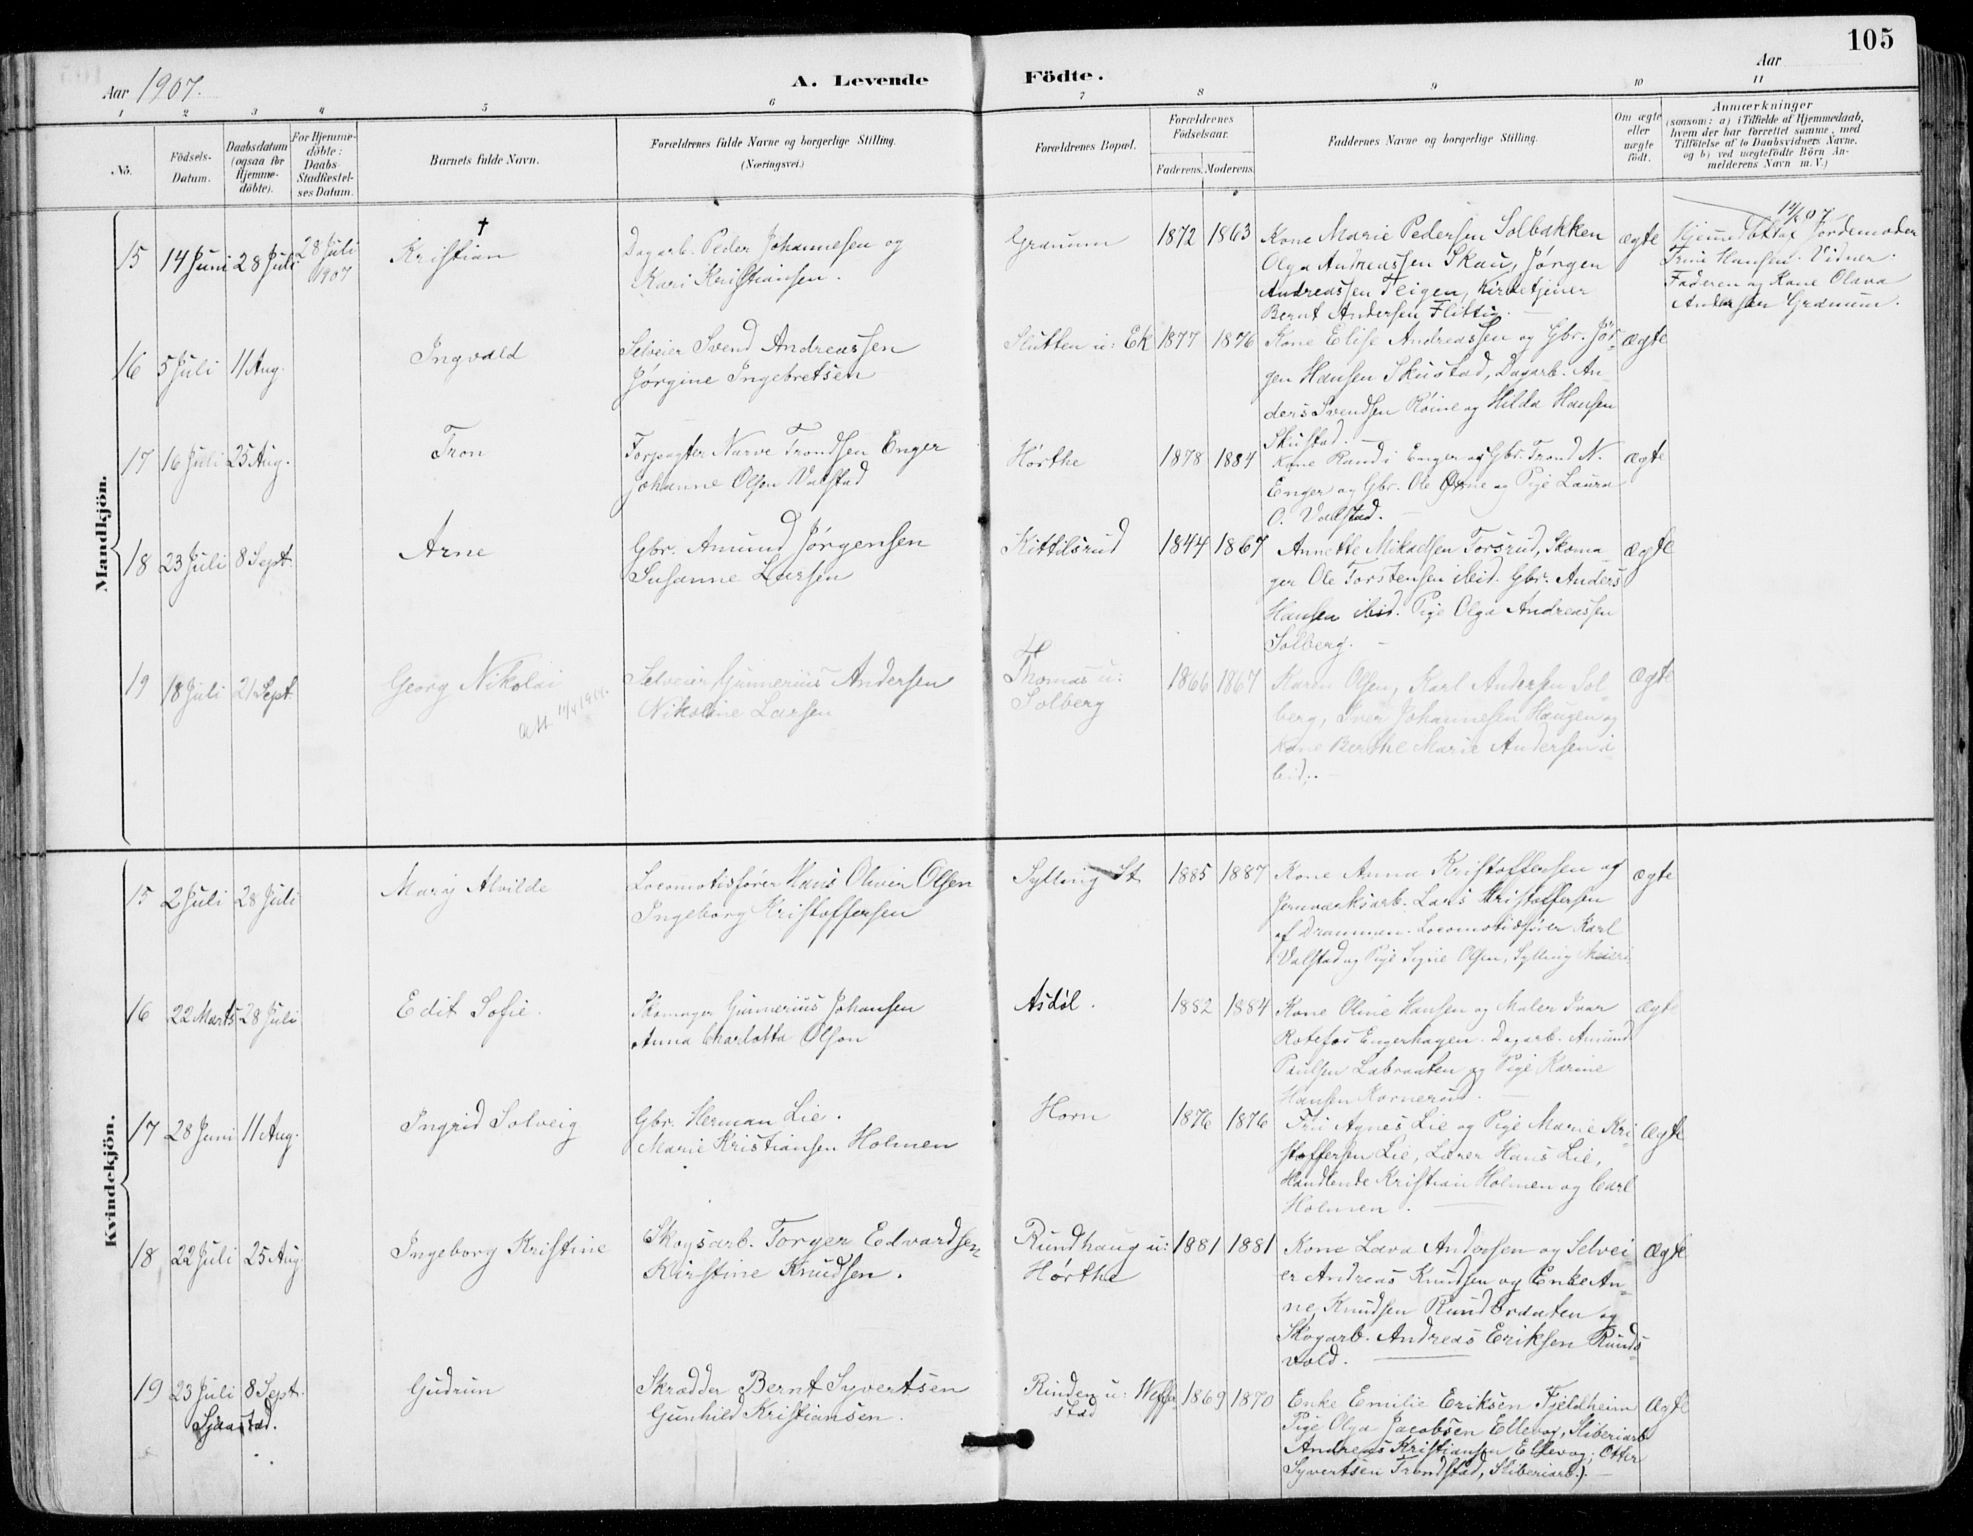 105
Aar 1907.
A. Levende Födte.
Aar
1 2 3 4 5 6 7 8 9 10 11
No.
Födsels-Datum.
Daabsdatum (ogsaa for Hjemme-döbte).
For Hjemme-döbte: Daabs-Stadfæstel-ses Datum.
Barnets fulde Navn.
Forældrenes fulde Navne og borgerlige Stilling.
(Næringsvei.)
Forældrenes Bopæl.
Forældrenes Födselsaar.
Faderens. Moderens.
Faddernes Navne og borgerlige Stilling.
Om ægte eller uægte födt.
Anmærkninger
(saasom: a) i Tilfælde af Hjemmedaab,
hvem der har forrettet samme, med
Tilföielse af to Daabsvidners Navne.
og b) ved uægtefödte Börn An-
melderens Navn m. V.)
Mandkjön.
15 14 Juni 28 Juli 28 Juli 1907
†
Kristian
Dagarb. Peder Johannesen og
Kari Kristiansen.
Granum
1872 1863
Kone Marie Pedersen Solbakken
Olga Andreassen Skau, Jørgen
Andreassen Teigen, Kirketjener
Bernt Andersen Flittig.
ægte
Hjemmedøbt af Jordemoder
Trine Hansen. Vidner.
Faderen og Kone Olava
Andersen Granum.
16 5 Juli 11 Aug.
Ingvald
Selveier Svend Andreassen
Jørgine Ingebretsen
Slutten u: Ek
1877 1876
Kone Elise Andreassen og Gbr. Jør-
gen Hansen Skustad, Dagarb. An-
ders Svendsen Røine og Hilda Hansen
Skustad.
ægte
17 16 Juli 25 Aug.
Tron
Forpagter Narve Trondsen Enger
Johanne Olsen Valstad
Hørthe
1878 1884
Kone Randi Enger og Gbr. Trond N.
Enger og Gbr. Ole Ørne og Pige Laura
O. Valstad.
ægte
18 23 Juli 8 Sept.
Arne
Gbr. Amund Jørgensen
Susanne Larsen
Kittilsrud
1844 1867
Annette Mikaelsen Torsrud, Skoma-
ger Ole Torstensen ibid. Gbr. Anders
Hansen ibid. Pige Olga Andreassen
Solberg.
ægte
19 18 Juli 21 Sept.
Georg Nikolai
Selveier Gunnerius Andersen
Nikoline Larsen
Thomas u:
Solberg
1866 1867
Karen Olsen, Karl Andersen Sol-
berg, Iver Johannesen Haugen og
Kone Berthe Marie Andersen i-
bid.
ægte
Kvindekjön.
15 2 Juli 28 Juli
Mary Alvilde
Locomotivfører Hans Oliver Olsen
Ingeborg Kristoffersen
Sylling St.
1885 1887
Kone Anna Kristoffersen og
Jernværksarb. Lars Kristoffersen
af Drammen. Locomotivfører Karl
Valstad og Pige Signe Olsen, Sylling Meieri
ægte
16 22 Marts 28 Juli
Edit Sofie.
Skomager Gunnerius Johansen
Anna Charlotta Olson
Asdøl.
1882 1884
Kone Oline Hansen og Maler Ivar
Rotefos Engerhagen. Dagarb. Amund
Paulsen Labraaten og Pige Karine
Hansen Kornerud.
ægte
17 28 Juni 11 Aug.
Ingrid Solveig
Gbr. Herman Lie.
Marie Kristiansen Holmen
Horn
1876 1876
Fru Agnes Lie og Pige Marie Kri-
stoffersen Lie, Lærer Hans Lie,
Handlende Kristian Holmen og Carl
Holmen.
ægte
18 22 Juli 25 Aug.
Ingeborg Kristine
Skogsarb. Torger Edvardsen
Kirstine Knudsen.
Rundhaug u:
Hørthe
1881 1881
Kone Lava Andersen og Selvei-
er Andreas Knudsen og Enke An-
ne Knudsen Rundbraaten og
Skogarb. Andreas Eriksen Runds-
vold.
ægte
19 23 Juli 8 Sept.
Sjaastad.
Gudrun
Skrædder Bernt Syvertsen
Gunhild Kristiansen
Rinden u:
stad
1869 1870
Enke Emilie Eriksen Fjeldheim
Pige Olga Jacobsen Ellevog, Sliberiarb.
Andreas Kristiansen Ellevog; Otter
Syvertsen Trondstad, Sliberiarb.).
ægte